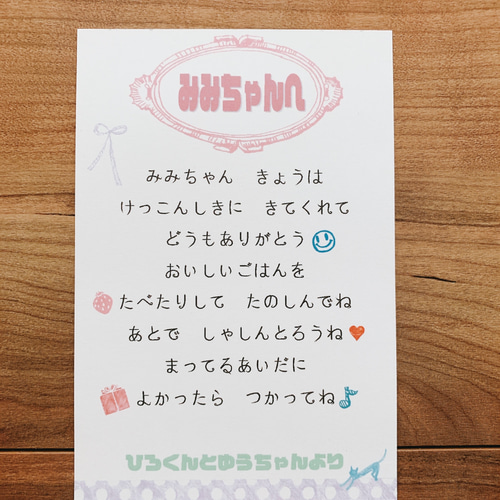 みみちゃんへ
みみちゃん　きょうは
けっこんしきに　きてくれて
どうもありがとう
おいしいごはんを
たべたりして　たのしんでね
あとで　しゃしんとろうね
まってるあいだに
よかったら　つかってね
ひろくんとゆうちゃんより